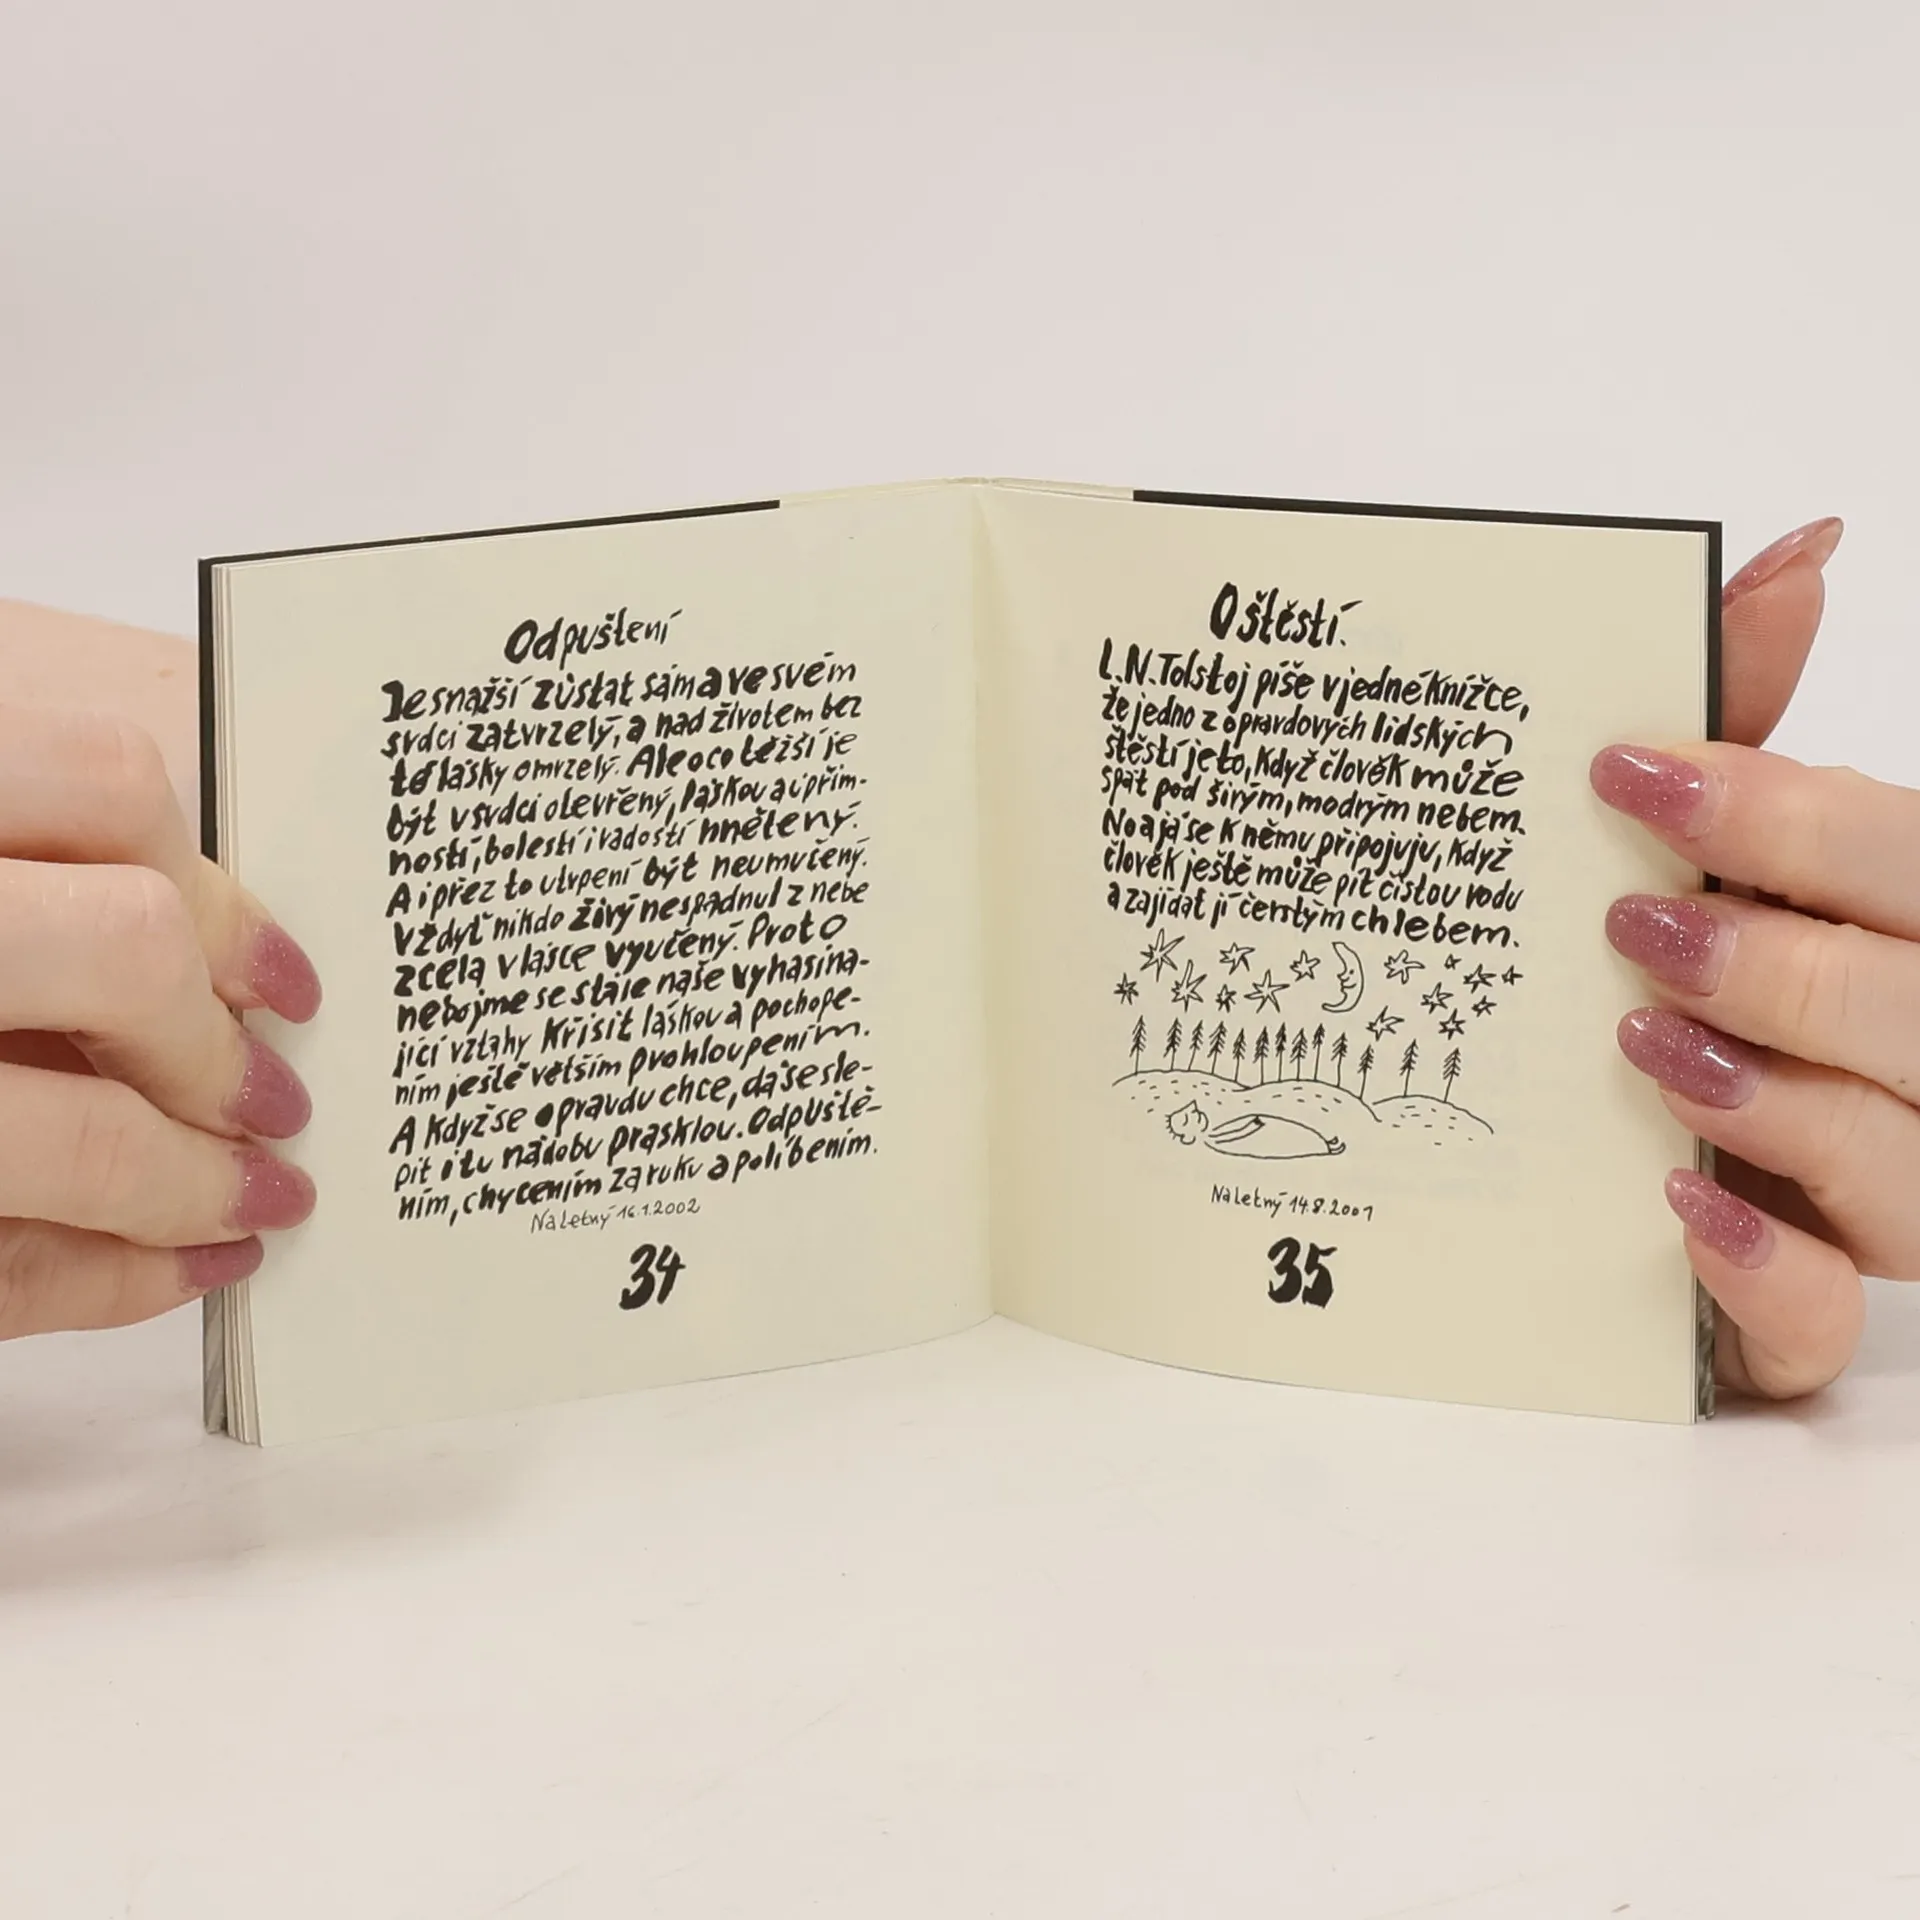 Odpuštení
Je snažší zůstat sám a ve svém
srdci zatvrzelý, a nad životem bez
té lásky omrzelý. Ale oco těžší je
být v srdci otevřený, láskou a upřím-
ností, bolestí i radostí hnětený.
A i přez to utrpení být neumučený.
Vždyť nikdo živý nespadnul z nebe
zcela v lásce vyučený. Proto
nebojme se stále naše vyhasína-
jící vztahy Křísit láskou a pochope-
ním ještě větším prohloupením.
A Když se opravdu chce, dá se sle-
pit i tu nádobu prasklou. Odpuště-
ním, chycením za ruku a políbením.
Na Letný 16.1.2002
34
O štěstí.
L.N. Tolstoj píše v jedné Knížce,
že jedno z opravdových lidských
štěstí je to, Když člověk může
spát pod širým, modrým nebem.
No a já se K němu připojuju, Když
člověk ještě může pít čistou vodu
a zajídat jí čerstým chlebem.
Na Letný 14.8.2001
35